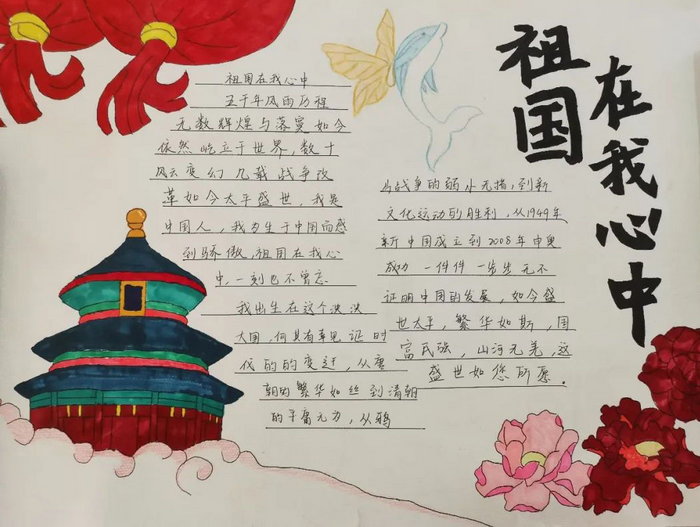 祖国
在我心中
祖国在我心中
五千年风雨历程
无数辉煌与落寞如今
依然屹立于世界，数十
风云变幻几载战争改
革如今太平盛世，我是
中国人，我为生于中国而感
到骄傲，祖国在我心
中，一刻也不曾忘
我出生在这个泱泱
大国，何其有幸见证时
代的的变迁，从唐
朝的繁华如丝到清朝
的平庸无力，从鸦
片战争的弱小无措，到新
文化运动的胜利，从1949年
新中国成立到2008年申奥
成功一件件一步步无不
证明中国的发展，如今盛
世太平，繁华如斯，国
富民强，山河无恙，这
盛世如您所愿．